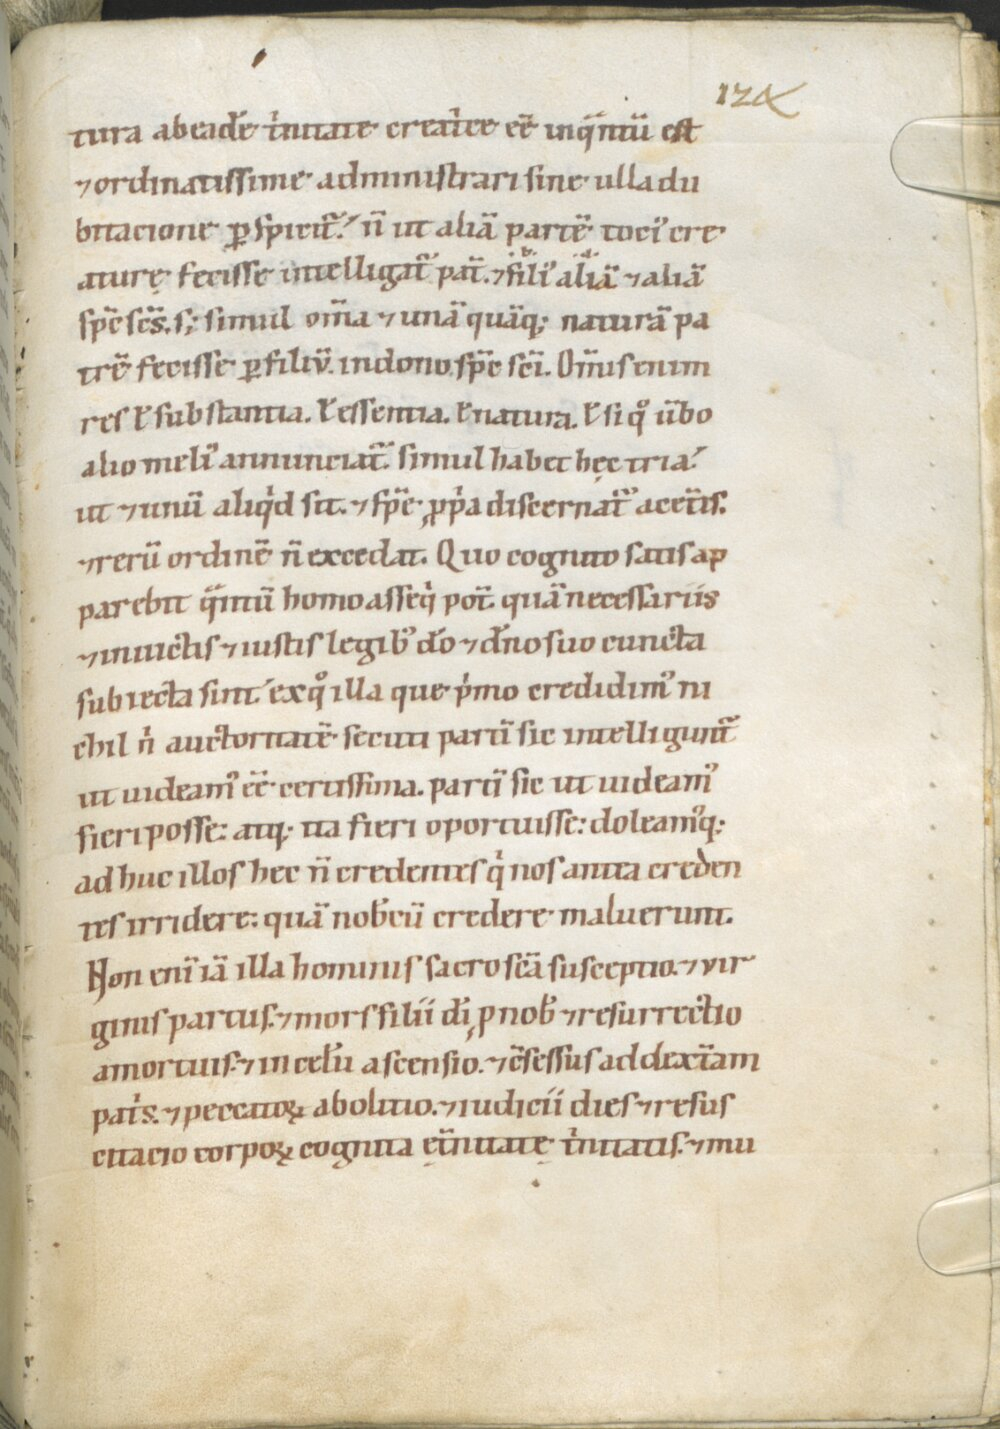 124
tura ab eadē t̾initate creat̾ice ēē inq̄ntū est
⁊ ordinatissime administrari sine ulla du
bitacione ꝑ spiritū. n̄ ut aliā partē toci᷒ cre
aturę fecisse intelligat᷑ pat̄. ⁊ fili᷒ aliā ⁊ aliā
sp̄c sc̄s. s; simul om̄a ⁊ unā quāq; naturā pa
trē fecisse ꝑ filiū. in dono sp̄c sc̄i. Om̄is enim
res ł substantia. ł essentia. ł natura. ł si qͦ ūbo
alio meli᷒ annunciat᷑. simul habet hęc tria.
ut ⁊ unū aliq̇d sit. ⁊ sp̄e ꝓṗa discernat᷑ a cet̄is.
⁊ rerū ordinē n̄ excedat. Quo cognito satis ap
parebit q̄ntū homo asseq̇ pot̄. quā necessariis
⁊ inuictis ⁊ iustis legib᷒ dō ⁊ dn̄o suo cuncta
subiecta sint. ex qͦ illa que ṗmo credidim᷒ ni
chil ṅ auctoritatē secuti parti̅ sic intelligunt᷑
ut uideam᷒ ēē certissima. parti̅ sic ut uideam᷒
fieri posse: atq; ita fieri oportuisse: doleam᷒q;
adhuc illos hec n̄ credentes q̇ nos antea creden
tes irridere: quā nob̄cū credere maluerunt.
Non eni̅ iā illa hominis sacroscā susceptio. ⁊ vir
ginis partus. ⁊ mors filii di̅ ꝓ nob̄ ⁊ resurrectio
a mortuis. ⁊ in celū ascensio. ⁊ c̄sessus ad dext̄am
pat̾s. ⁊ peccatoꝝ abolitio. ⁊ iudicii dies ⁊ resus
citacio corpoꝝ cognita ęt̄nitatę t̾initatis. ⁊ mu